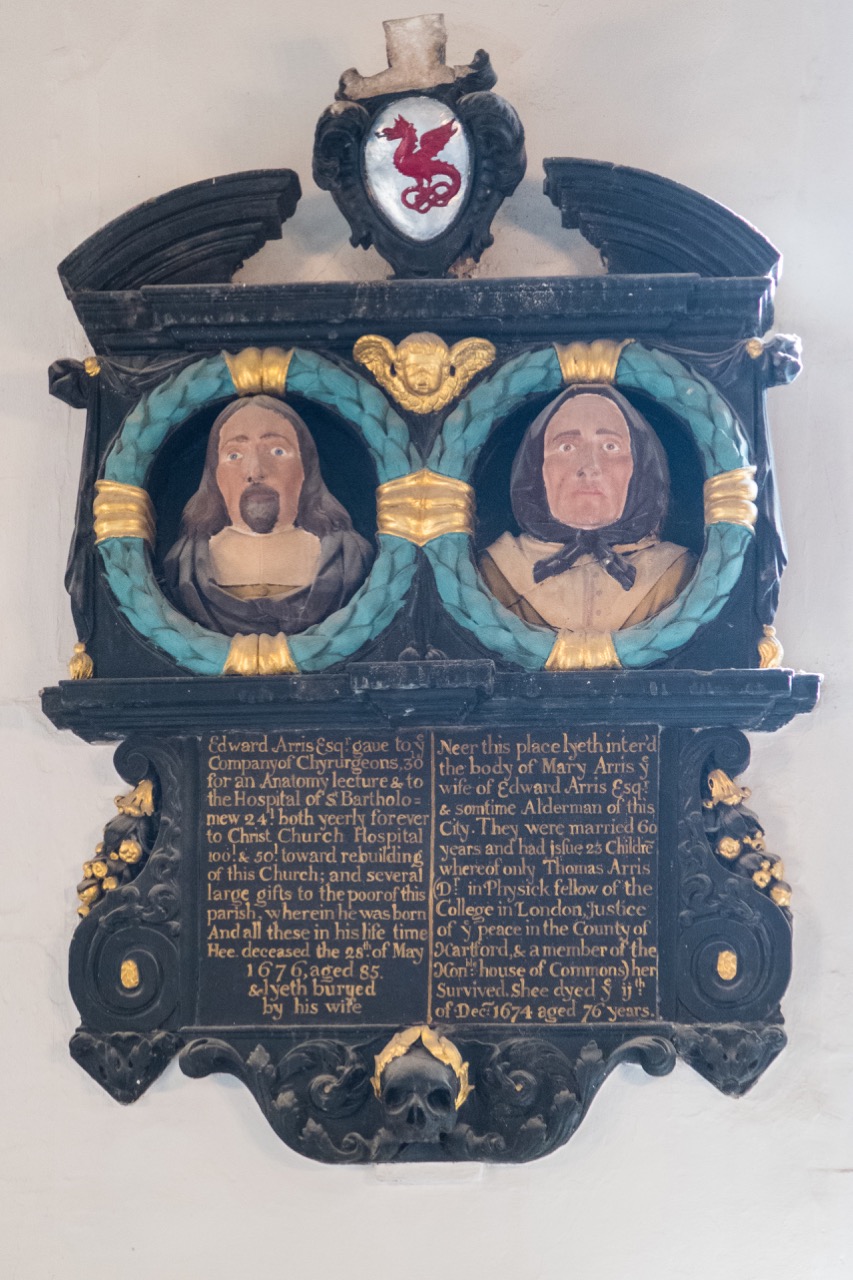 Edward Arris Esqr. gave to ye
Company of Chyrurgeons, 30l
for an Anatomy lecture & to
the Hospital of St. Bartholo=
mew 24l. both yeerly for ever
to Christ Church Hospital
100l. & 50l. toward rebuilding
of this Church; and several
large gifts to the poor of this
parish, wherein he was born
And all these in his life time
Hee deceased the 28th. of May
1676, aged 85.
& lyeth buryed
by his wife
Neer this place lyeth inter'd
the body of Mary Arris ye
wife of Edward Arris Esqr.
& somtime Alderman of this
City. They were married 60
years and had jssue 23 Childrē
whereof only Thomas Arris
(Dr. in Physick fellow of the
College in London, Justice
of ye peace in the County of
Hartford, & a member of the
Honble. house of Commons) her
Survived. Shee dyed ye ijth
of Decr. 1674 aged 76 years.